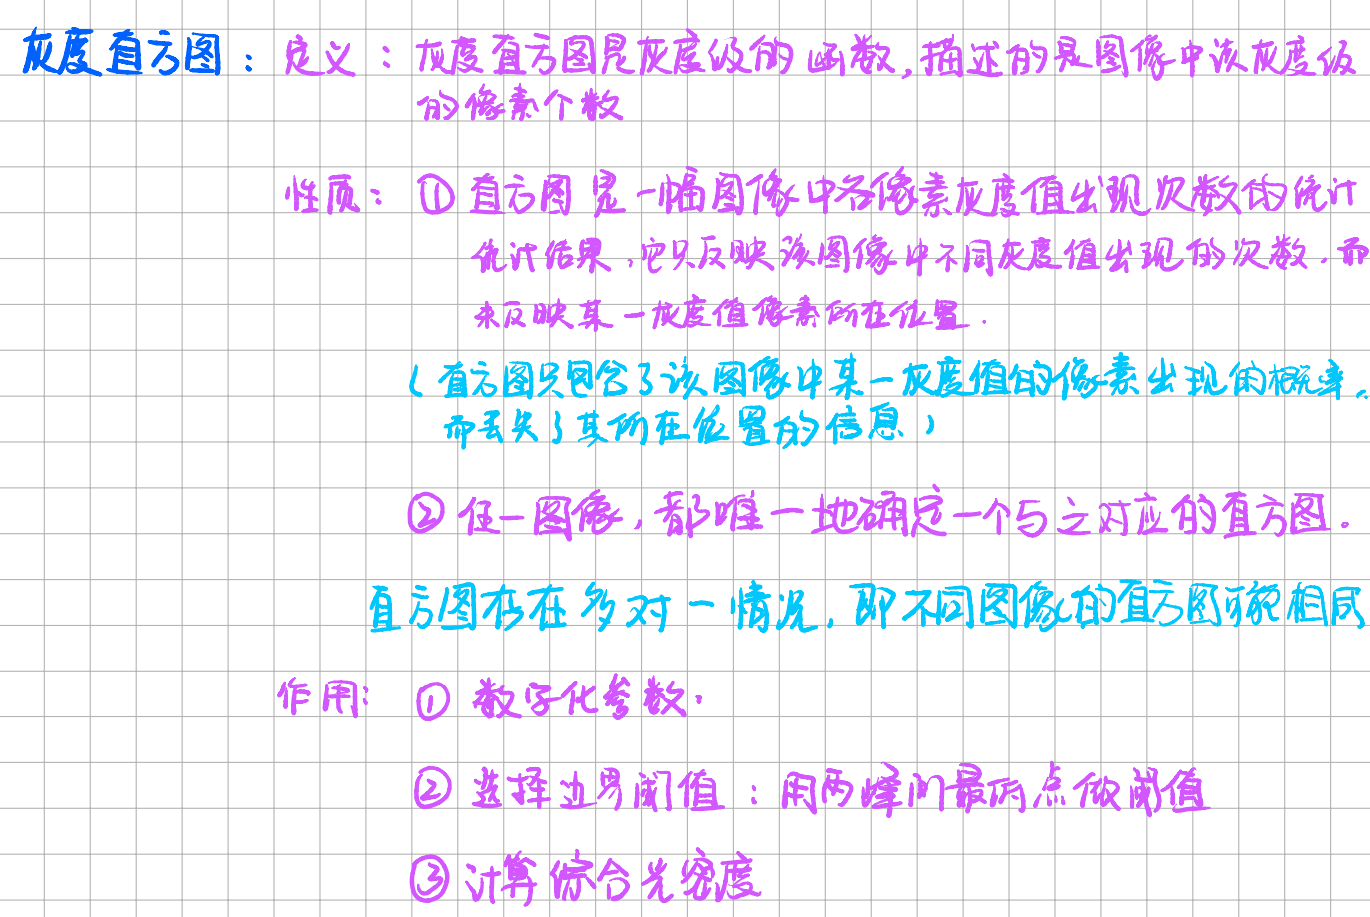 灰度直方图：定义：灰度直方图是灰度级的函数,描述的是图像中该灰度级
的像素个数
性质：① 直方图是一幅图像中各像素灰度值出现次数的统计
统计结果,它只反映该图像中不同灰度值出现的次数,而
未反映某一灰度值像素所在位置.
(直方图只包含了该图像中某一灰度值的像素出现的概率,
而丢失了其所在位置的信息)
② 任一图像,都唯一地确定一个与之对应的直方图.
直方图存在多对一情况,即不同图像的直方图可能相同
作用：① 数字化参数.
② 选择边界阈值：用两峰间最低点做阈值
③ 计算综合光密度